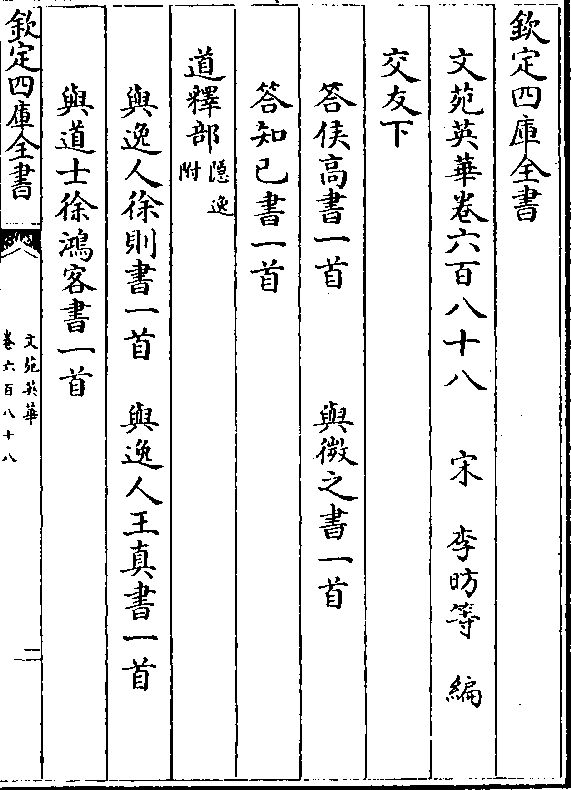 欽定四庫全書
文苑英華卷六百八十八 宋 李昉等 編
交友下
答侯高書一首 與微之書一首
答知已書一首
道釋部隠逸附
與逸人徐則書一首 與逸人王真書一首
與道士徐鴻客書一首
欽定四庫全書
文苑英華
卷六百八十八
二